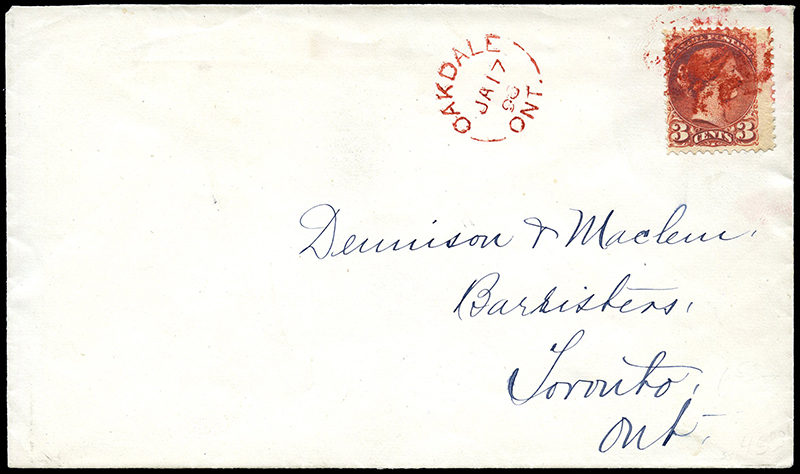 OAKDALE
JA 17
90
ONT.
3 CENTS 3
Dennison & Maclem,
Barristers,
Toronto,
Ont.